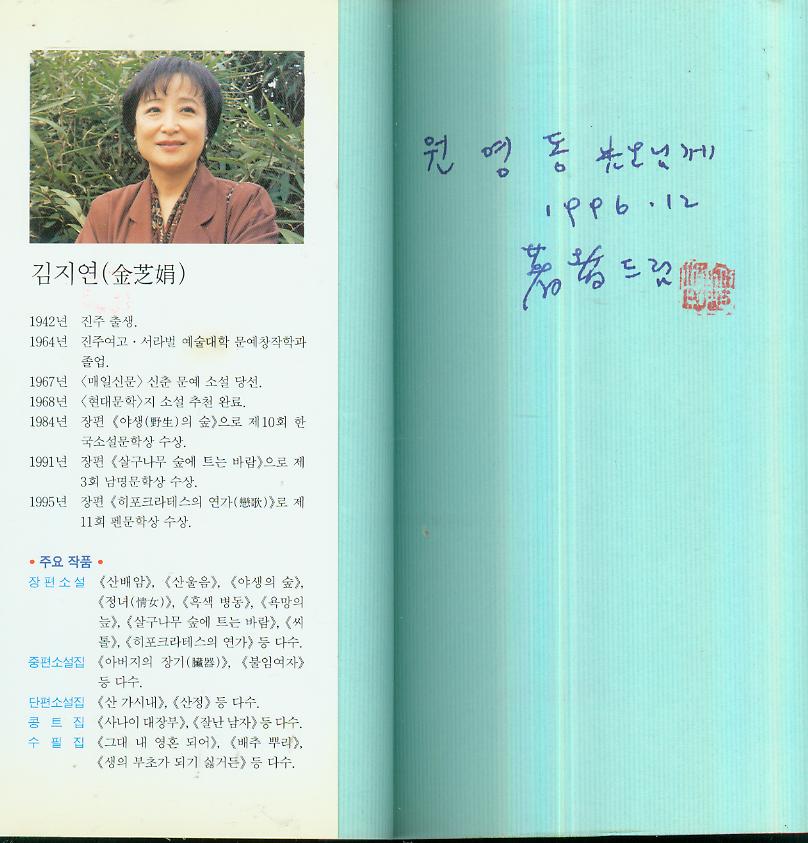 김지연(金芝娟)
1942년 진주 출생.
1964년 진주여고·서라벌 예술대학 문예창작학과
졸업.
1967년 〈매일신문〉 신춘 문예 소설 당선.
1968년 〈현대문학〉지 소설 추천 완료.
1984년 장편 《야생(野生)의 숲》으로 제10회 한
국소설문학상 수상.
1991년 장편 《살구나무 숲에 트는 바람》으로 제
3회 남명문학상 수상.
1995년 장편 《히포크라테스의 연가(戀歌)》로 제
11회 펜문학상 수상.
• 주요 작품 •
장편소설 《산배암》, 《산울음》, 《야생의 숲》,
《정녀(情女)》, 《흑색 병동》, 《욕망의
늪》, 《살구나무 숲에 트는 바람》, 《씨
톨》, 《히포크라테스의 연가》 등 다수.
중편소설집 《아버지의 장기(臟器)》, 《불임여자》
등 다수.
단편소설집 《산 가시내》, 《산정》 등 다수.
콩트집 《사나이 대장부》, 《잘난 남자》 등 다수.
수필집 《그대 내 영혼 되어》, 《배추 뿌리》,
《생의 부초가 되기 싫거든》 등 다수.
원영동 先生님께
1996.12
著者 드림